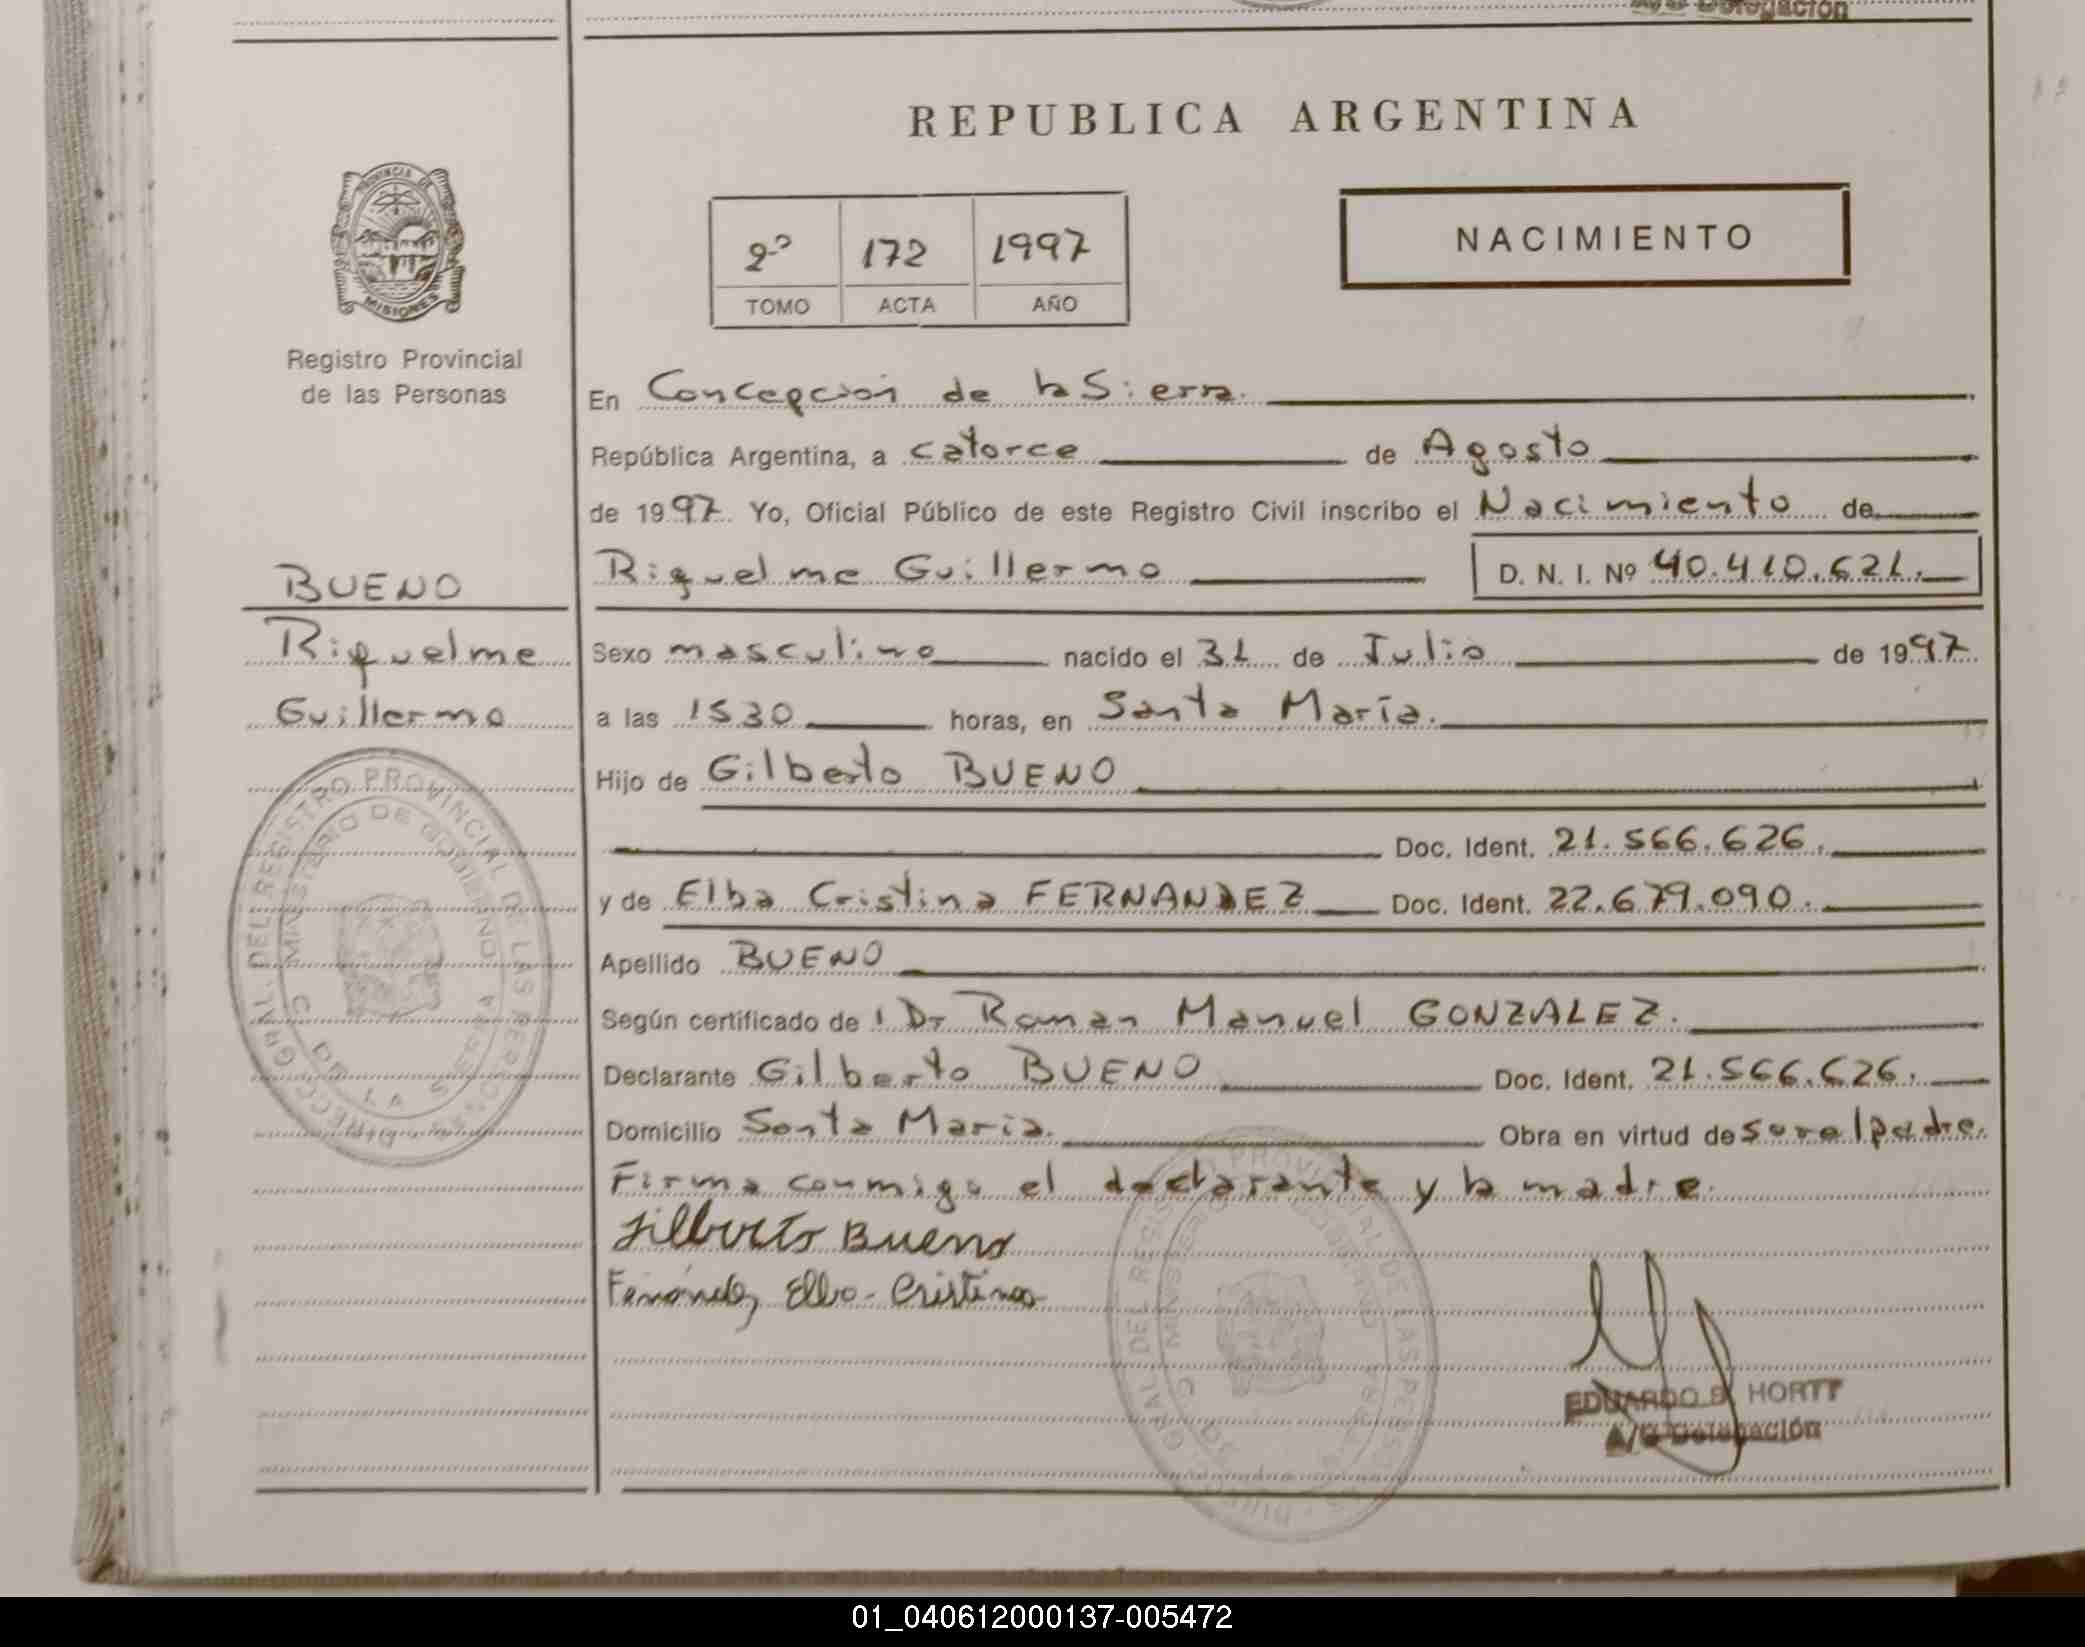 A/C Delegación
REPUBLICA ARGENTINA
PROVINCIA DE
MISIONES
Registro Provincial
de las Personas
2º 172 1997
TOMO ACTA AÑO
NACIMIENTO
En Concepción de la Sierra.
República Argentina, a catorce de Agosto
de 1997 Yo, Oficial Público de este Registro Civil inscribo el Nacimiento de
Riquelme Guillermo D. N. I. Nº 40.410.621.
BUENO
Riquelme
Guillermo
Sexo masculino nacido el 31 de Julio de 1997
a las 1530 horas, en Santa María.
Hijo de Gilberto BUENO
Doc. Ident. 21.566.626.
y de Elba Cristina FERNANDEZ Doc. Ident. 22.679.090.
Apellido BUENO
Según certificado de Dr Roman Manuel GONZALEZ.
Declarante Gilberto BUENO Doc. Ident. 21.566.626.
Domicilio Santa María. Obra en virtud de ser el padre.
Firma conmigo el declarante y la madre.
Gilberto Bueno
Fernández Elba Cristina
DEL REGISTRO PROVINCIAL DE LAS PERSONAS
MINISTERIO DE GOBIERNO
EDUARDO B. HORTT
A/C Delegación
01_040612000137-005472